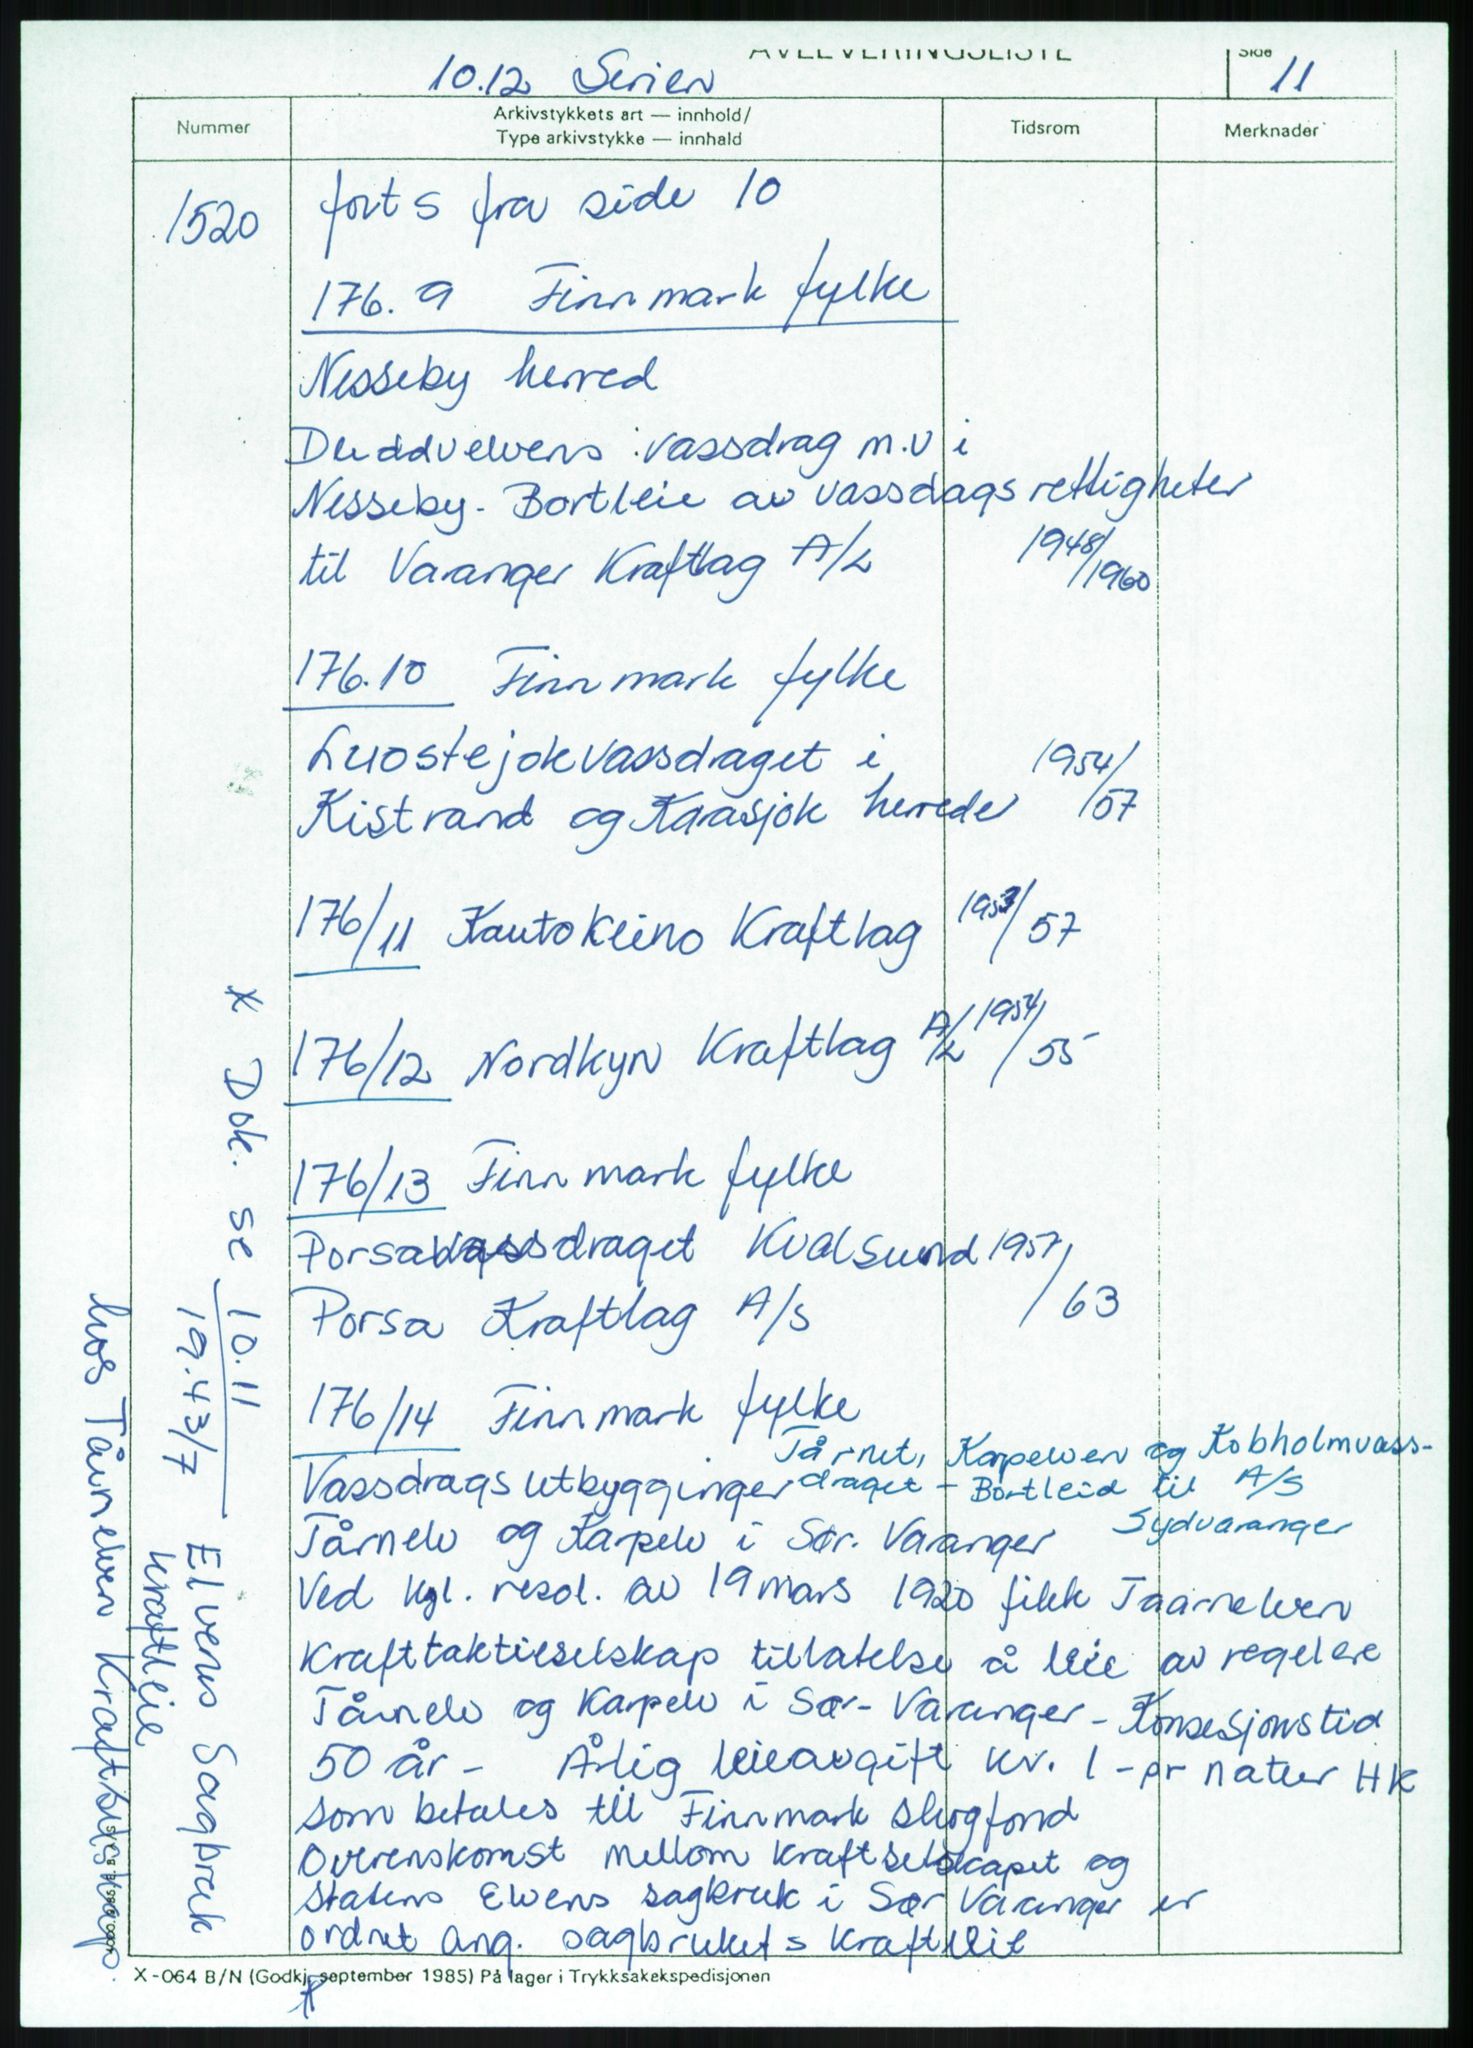 AVLEVERINGSLISTE
Side 11
10.12 Serien
Nummer
Arkivstykkets art — innhold/
Type arkivstykke — innhald
Tidsrom
Merknader
1520
forts fra side 10
176.9 Finnmark fylke
Nesseby herred
Duddvelvens vassdrag m.v i
Nesseby - Bortleie av vassdagsrettigheter
til Varanger Kraftlag A/L 1948/1960
176.10 Finnmark fylke
Luostejokvassdraget i 1954/
Kistrand og Karasjok herreder 57
176/11 Kautokeino Kraftlag 1953/57
176/12 Nordkyn Kraftlag A/L 1954/55
176/13 Finnmark fylke
Porsavassdraget Kvalsund 1957/
Porsa Kraftlag A/S 63
176/14 Finnmark fylke
Tårnet, Karpelven og Kobholmvass-
draget - Bortleid til A/S
Sydvaranger
Vassdragsutbygginger
Tårnelv og Karpelv i Sør. Varanger
Ved kgl. resol. av 19 mars 1920 fikk Taarnelven
Krafttaktieselskap tillatelse å leie av regulere
Tårnelv og Karpelv i Sør-Varanger - Konsesjonstid
50 år - Årlig leieavgift kr. 1 - pr natur HK
som betales til Finnmark skogfond
Overenskomst mellom kraftselskapet og
statens Elvens sagbruk i Sør Varanger er
ordnet ang. sagbrukets kraftleie
x
x Dok. se 10.11
19.43/7 Elvens Sagbruk
kraftleie
hos Tårnelven Kraftselskap.
X-064 B/N (Godkj. september 1985) På lager i Trykksakekspedisjonen